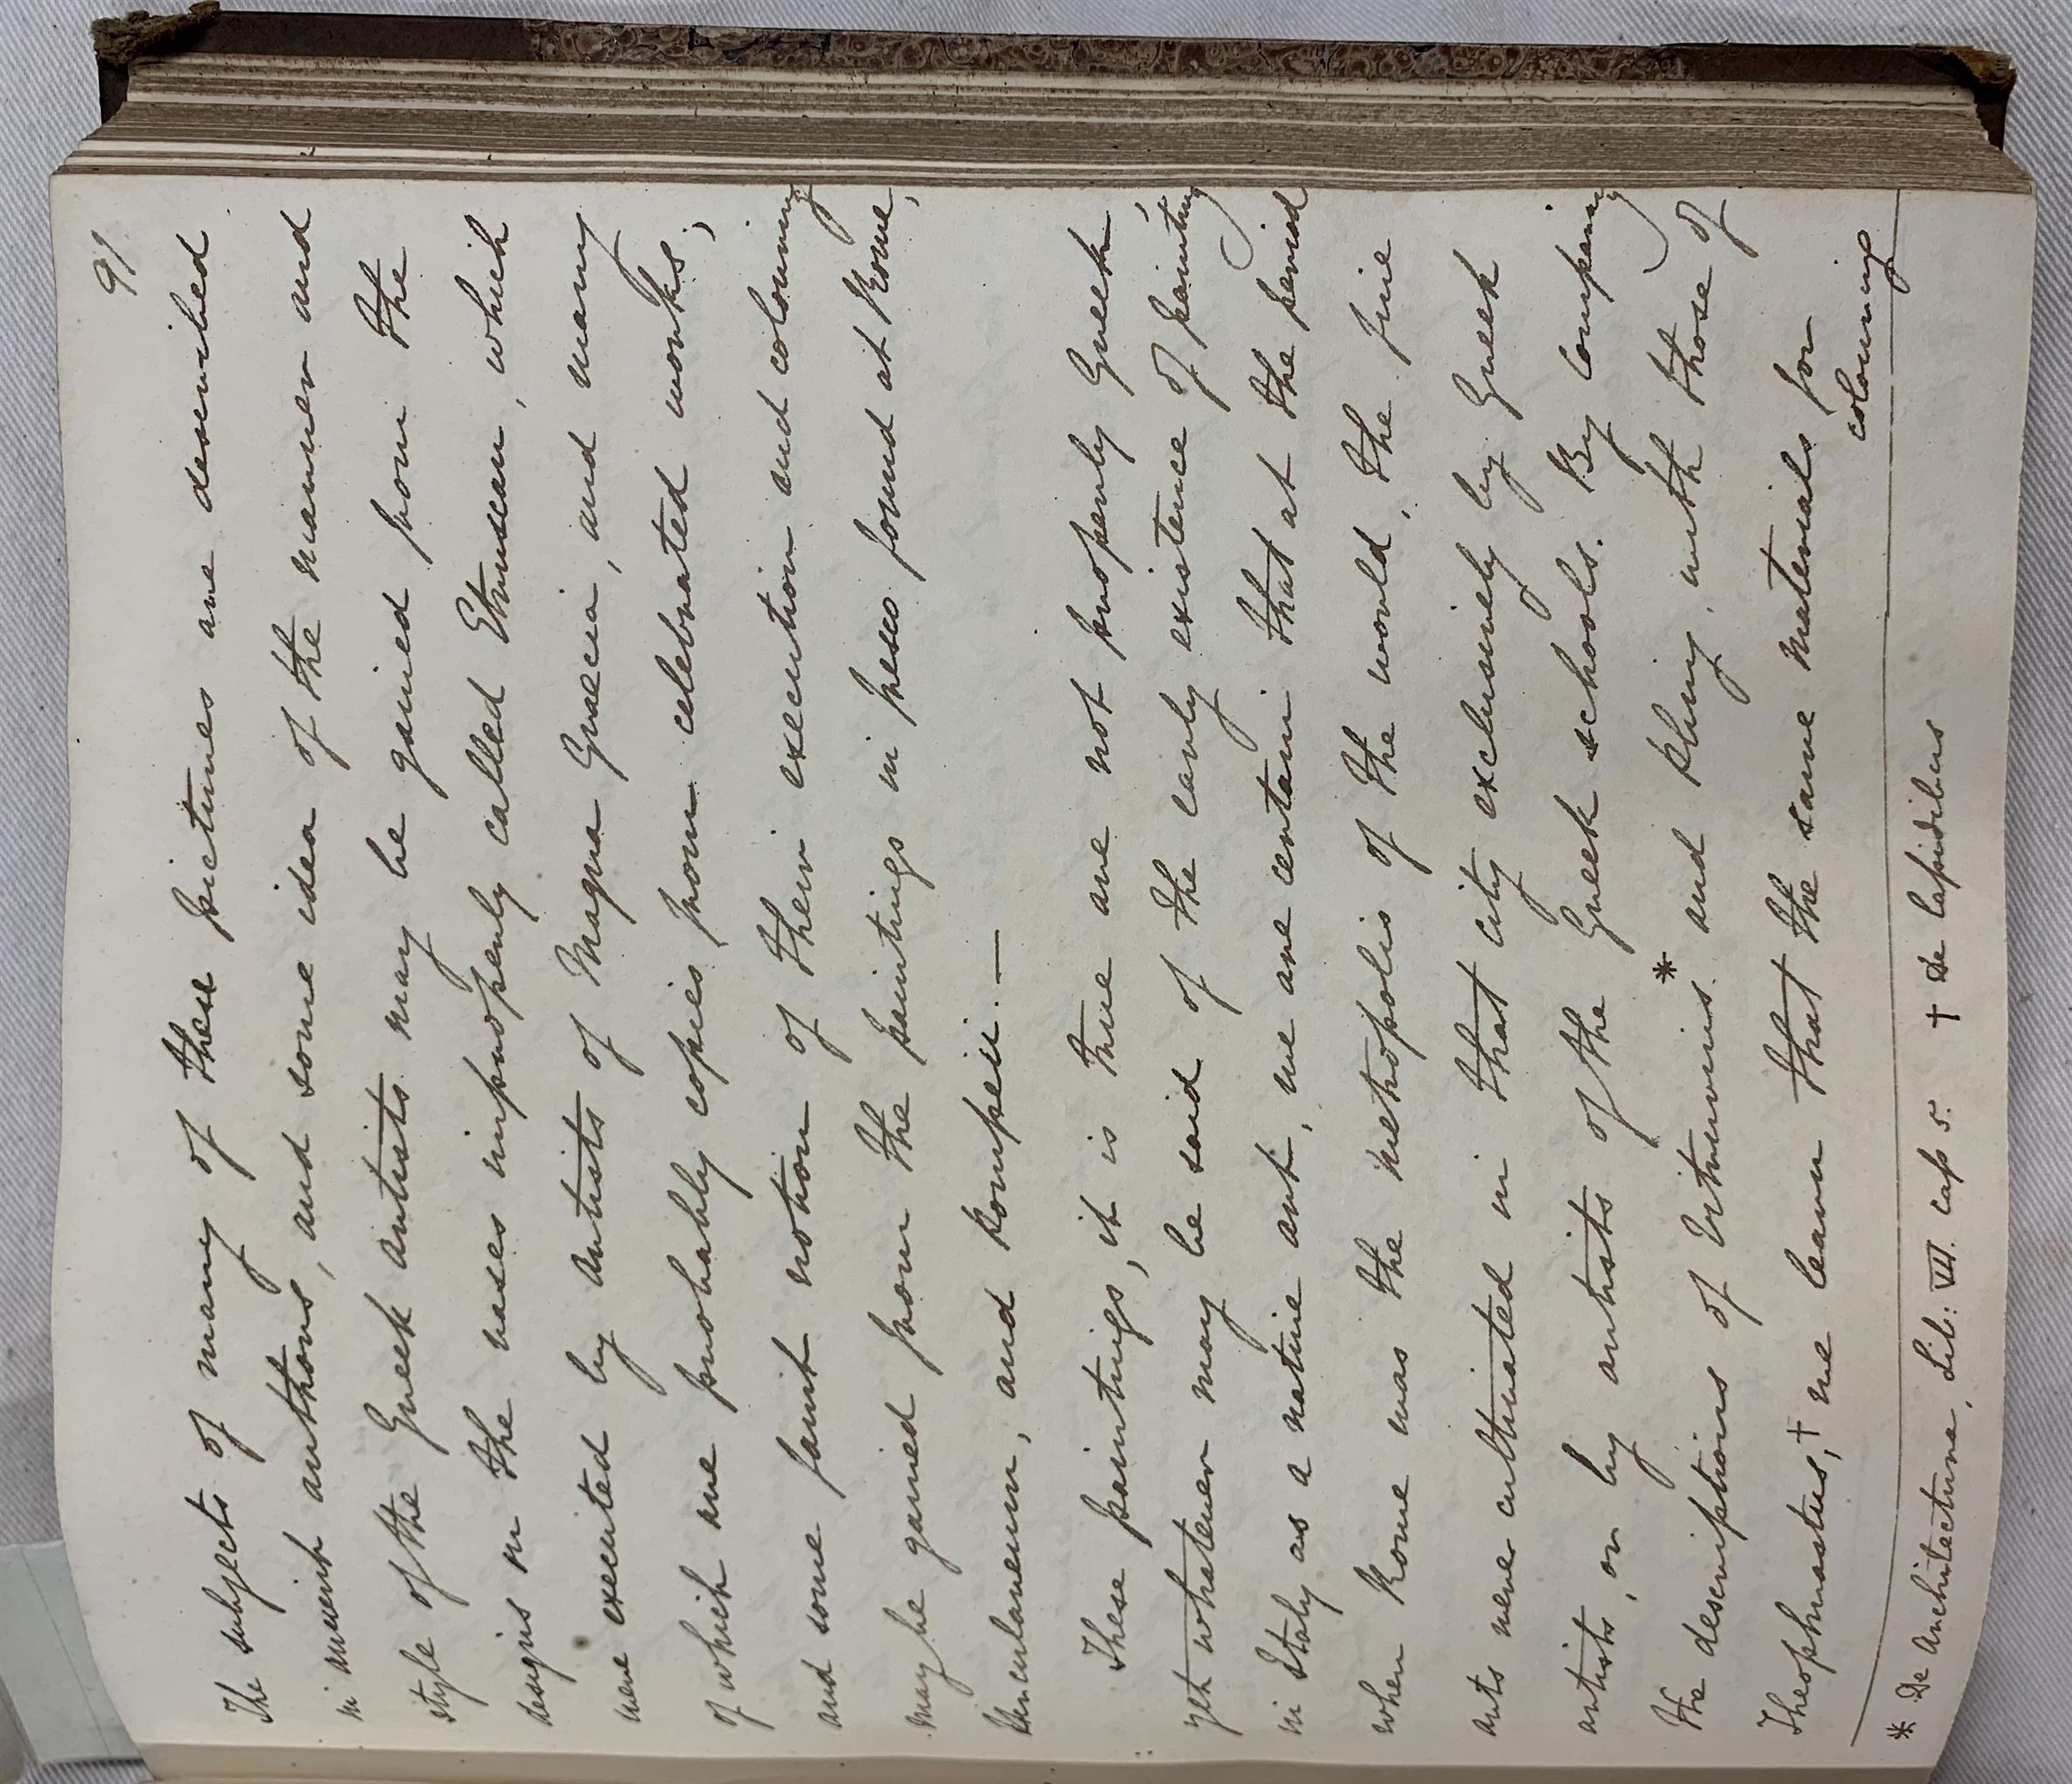 91.
The subjects of many of these pictures are described
in ancient authors, and some idea of the manner and
style of the Greek artists may be gained from the
designs on the vases improperly called Etruscan, which
were executed by artists of Magna Graecia, and many
of which are probably copies from celebrated works;
and some faint notion of their execution and colouring
may be gained from the paintings in fresco found at Rome,
Herculaneum, and Pompeii.—
These paintings, it is true are not properly Greek;
yet whatever may be said of the early existence of painting
in Italy as a native art, we are certain that at the period
when Rome was the metropolis of the world, the fine
arts were cultivated in that city exclusively by Greek
artists, or by artists of the Greek schools. By comparing
the descriptions of Vitruvius* and Pliny, with those of
Theophrastus,† we learn that the same materials for
colouring
* De Architectura, Lib: VII. cap 5. † De Lapidibus